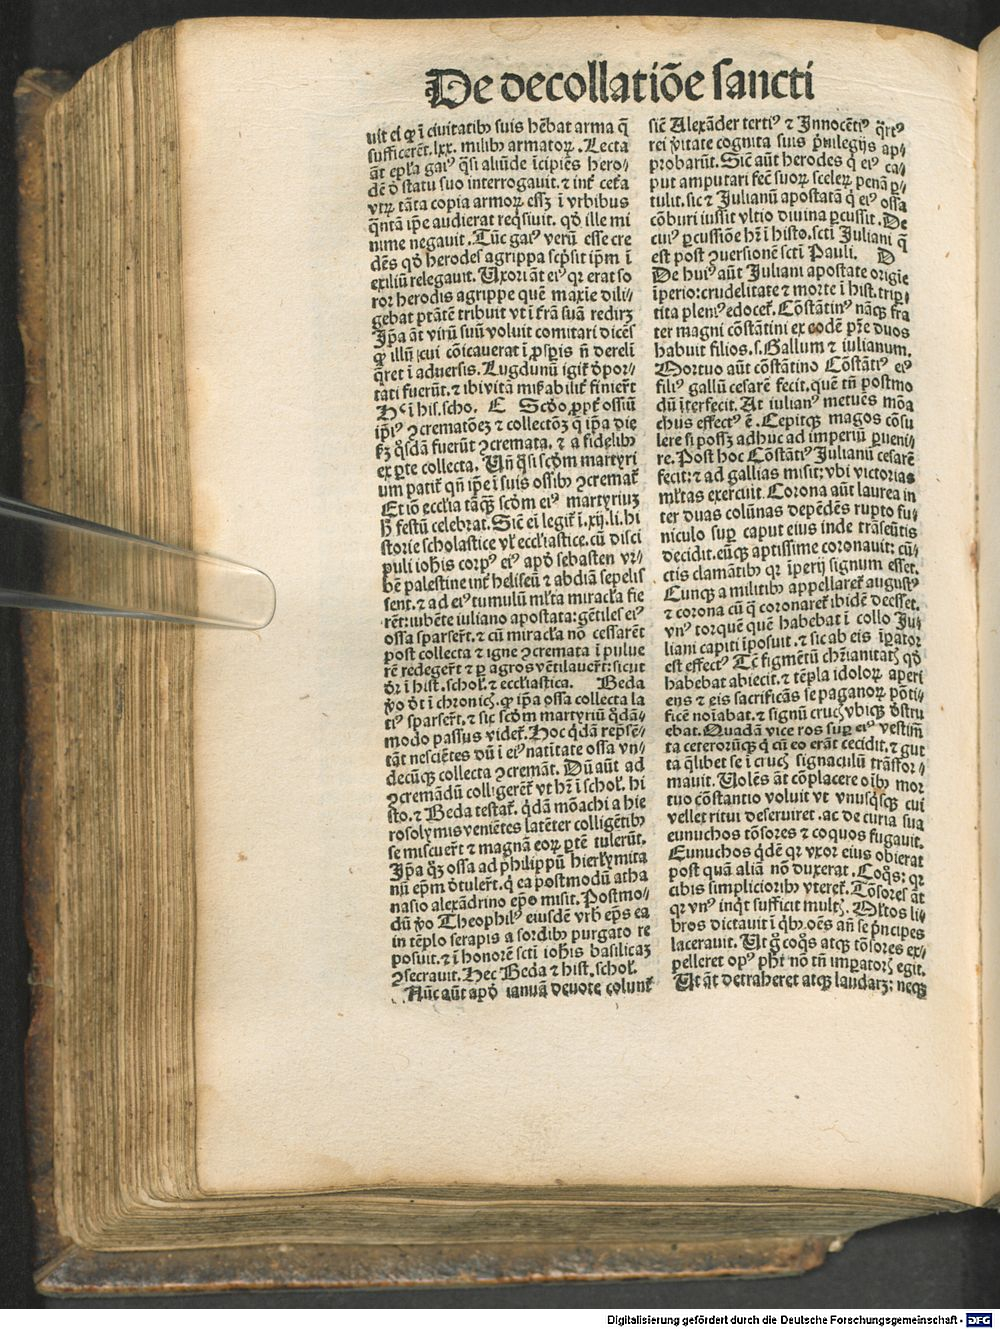 De decollatiōe sancti
uit ei qꝛ ī ciuitatibꝰ suis hēbat arma q̄
sufficerēt.lxx. milibꝰ armatoꝝ. Lecta
āt ep̄la gaiꝰ q̄si aliūde īcipiēs hero⸗
dē ð statu suo interrogauit. ⁊ int̄ cet̄a
vtꝝ tāta copia armoꝝ essꝫ ī vrbibus
q̄ntā ip̄e audierat reqͥsiuit. qð ille mi
nime negauit. Tūc gaiꝰ verū esse cre
dēs qð herodes agrippa scp̄sit ip̄m ī
exiliū relegauit. Uxori āt eiꝰ qꝛ erat so
ror herodis agrippe quē maxīe dili⸗
gebat p̄tātē tribuit vt ī frā̄ suā redirꝫ
Ip̄a āt virū suū voluit comitari dicēs
qꝛ illū cui cōicauerat ī ꝓsp̄is n̄ dereli
q̄ret ī aduersis. Lugdunū igit̄ ðpor⸗
tati fuerūt. ⁊ ibi vitā miẞabilit̄ finier̄t
Hͨ ī his. scho. E Scðo ꝓpt̄ ossiū
ip̄iꝰ ꝯcrematōeꝫ ⁊ collectōꝫ q̄ ip̄a die
ẞꝫ q̄sdā fuerūt ꝯcremata. ⁊ a fidelibꝰ
ex ꝑte collecta. Un̄ q̄si scðm martyri
um patit̄ qn̄ ip̄e ī suis ossibꝰ ꝯcremat̄
Et iō eccl̄ia tāqꝫ scðm eiꝰ martyriuꝫ
ħ festū celebrat. Sic̄ ei̇ legit̄ ī.xij.li.hi
storie scholastice vl̄ eccl̄iastice. cū disci
puli ioh̄is corpꝰ eiꝰ apð sebasten vr⸗
bē palestine int̄ heliseū ⁊ abdiā sepelis
sent. ⁊ ad eiꝰ tumulū ml̄ta miracl̄a fie
rēt: iubēte iuliano apostata: gētiles eiꝰ
ossa sparser̄t. ⁊ cū miracl̄a nō cessarēt
post collecta ⁊ igne ꝯcremata ī pulue
rē redeger̄t ⁊ ꝑ agros vētilauer̄t: sicut
ðr̄ ī hist. schol̄. ⁊ eccl̄iastica. Beda
ṽo ðt ī chronicꝭ. qꝛ ip̄a ossa collecta la
tiꝰ sparser̄t. ⁊ sic scðm martyriū q̄dā⸗
modo passus videt̄. Hoc q̄dā rep̄sē⸗
tāt nesciētes dū ī eiꝰ natitate ossa vn⸗
decūqꝫ collecta ꝯcremāt. Dū aūt ad
ꝯcremādū colligerēt̄ vt hr̄ ī schol̄. hi
sto. ⁊ Beda testat̄. q̄dā mōachi a hie
rosolymis veniētes latēter colligētibꝰ
se miscuer̄t ⁊ magnā eoꝝ ꝑtē tulerūt.
Ip̄a qꝫ ossa ad philippū hierl̄ymita
nū ep̄m ðtuler̄t. q̄ ea postmodū atha
nasio alexādrino ep̄o misit. Postmo⸗
dū ṽo Theophilꝰ eiusdē vrbꝭ ep̄s ea
in tēplo serapis a sordibꝰ purgato re
posuit. ⁊ ī honorē scti̅ ioh̄is basilicaꝫ
ꝯsecrauit. Hec Beda ⁊ hist. schol̄.
Nūc aūt apð ianuā deuote colunt̄
sic̄ Alexāder tertiꝰ ⁊ Innocētiꝰ q̄rtꝰ
rei ṽitate cognita suis p̄uilegijs ap⸗
probarūt. Sic̄ aūt herodes q̄ eiꝰ ca⸗
put amputari fec̄ suoꝝ sceleꝝ penā ꝑ⸗
tulit. sic ⁊ Julianū apostatā q̄ eiꝰ ossa
cōburi iussit vltio diuina ꝑcussit. De
cuiꝰ ꝑcussiōe hr̄ ī histo. scti̅ Juliani q̄
est post ꝯuersionē scti̅ Pauli. D
De huiꝰ aūt Juliani apostate origīe
īperio: crudelitate ⁊ morte ī hist. trip⸗
tita pleniꝰ edocet̄. Cōstātinꝰ nāqꝫ fra
ter magni cōstātini ex eodē p̄re duos
habuit filios. s. Gallum ⁊ iulianum.
Mortuo aūt cōstātino Cōstātiꝰ eiꝰ
filiꝰ gallū cesarē fecit. quē tn̄ postmo
dū īterfecit. At iulianꝰ metuēs mōa
chus effectꝰ ē. Cepitqꝫ magos cōsu
lere si possꝫ adhuc ad imperiū ꝑueni⸗
re. Post hoc Cōstātiꝰ Julianū cesarē
fecit: ⁊ ad gallias misit: vbi victorias
ml̄tas exercuit. Corona aūt laurea in
ter duas colūnas depēdēs rupto fu⸗
niculo suꝑ caput eius inde trāseūtis
decidit. eūqꝫ aptissime coronauit: cū⸗
ctis clamātibꝰ qꝛ īperij signum esset.
Cunqꝫ a militibꝰ appellaret̄ augustꝰ
⁊ corona cū q̄ coronaret̄ ibidē deesset.
vnꝰ torquē quē habebat ī collo Ju⸗
liani capiti īposuit. ⁊ sic ab eis īꝑator
est effectꝰ Tc̄ figmētū chr̄ianitatꝭ qð
habebat abiecit. ⁊ tēpla idoloꝝ aperi
ens ⁊ eis sacrificās se paganoꝝ pōti⸗
ficē noīabat. ⁊ signū crucꝭ vbiqꝫ ðstru
ebat. Quadā vice ros suꝑ eiꝰ vestim̄
ta ceterorūqꝫ q̄ cū eo erāt cecidit. ⁊ gut
ta q̄libet se ī crucꝭ signaculū trāsfor⸗
mauit. Uolēs āt cōplacere oībꝰ mor
tuo cōstantio voluit vt vnusq̄sqꝫ cui
vellet ritui deseruiret. ac de curia sua
eunuchos tōsores ⁊ coquos fugauit.
Eunuchos q̄dē qꝛ vxor eius obierat
post quā aliā nō duxerat. Coq̄s: qꝛ
cibis simplicioribꝰ vteret̄. Tōsores āt
qꝛ vnꝰ inq̄t sufficit multꝭ. Ml̄tos li⸗
bros dictauit ī qͥbꝰ oēs an̄ se p̄ncipes
lacerauit. Ut g̊ coq̄s atqꝫ tōsores ex⸗
pelleret opꝰ ph̄i nō tn̄ imꝑatorꝭ egit.
Ut āt detraheret atqꝫ laudarꝫ: neqꝫ
Digitalisierung gefördert durch die Deutsche Forschungsgemeinschaft - DFG